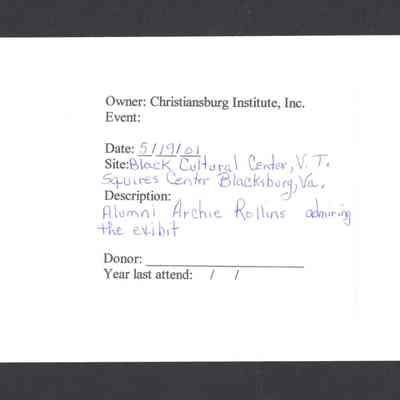 Owner: Christiansburg Institute, Inc.
Event:
Date: 5/19/01
Site: Black Cultural Center, V. T.
Squires Center Blacksburg, Va.
Description:
Alumni Archie Rollins admiring
the exibit
Donor:
Year last attend: / /